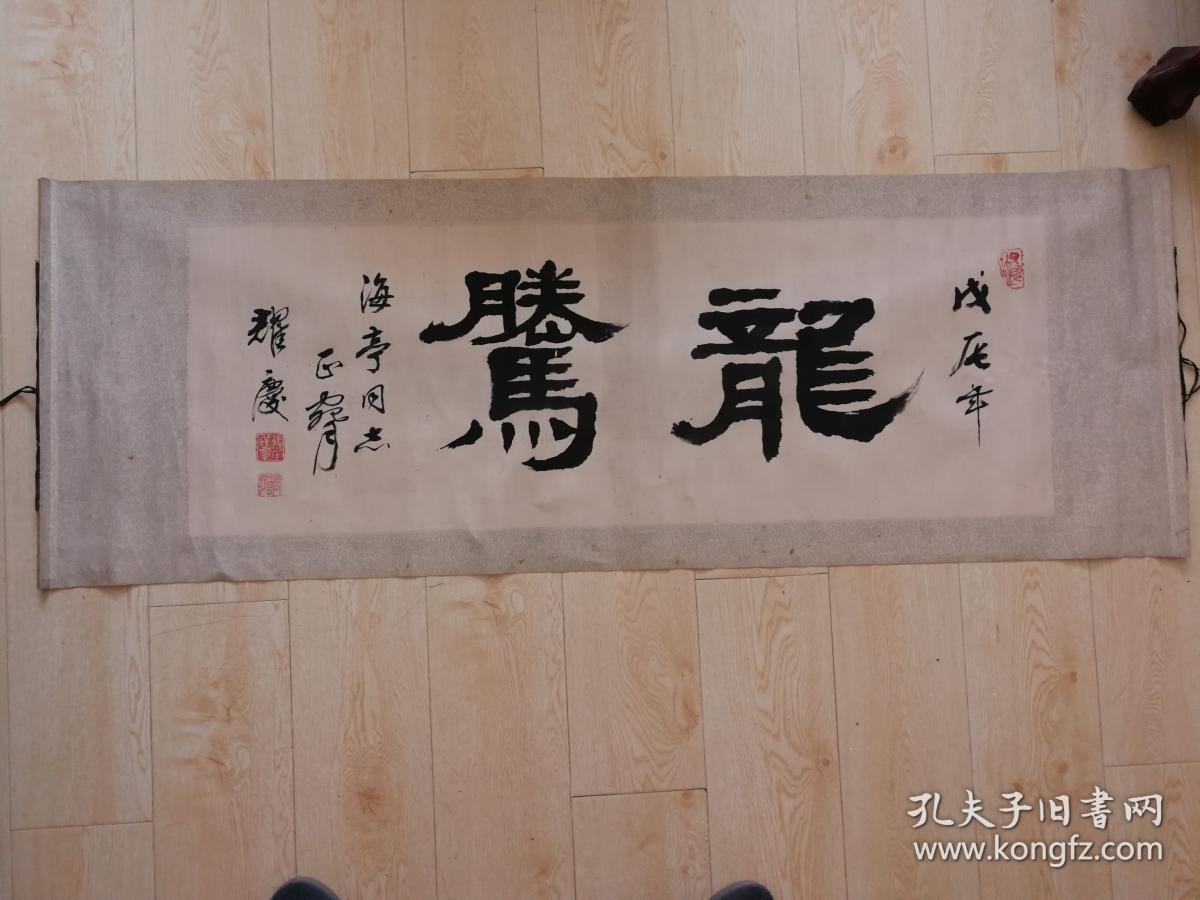 戊辰年
龍騰
海亭同志
正腕
耀慶
孔夫子旧书网
www.kongfz.com